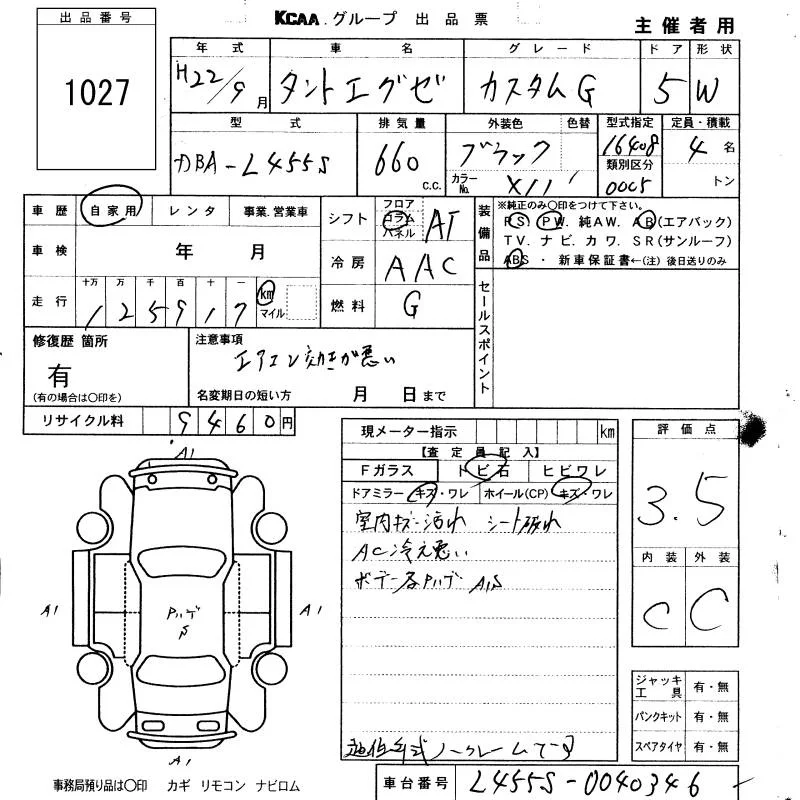 出品番号
KCAA.グループ 出品票
主催者用
1027
年式 車名 グレード ドア 形状
H22/9月 タントエグゼ カスタムG 5 W
型式 排気量 外装色 色替 型式指定 定員・積載
DBA-L455S 660 c.c. ブラック 16408 4名
カラーNo. X11 類別区分 0005 トン
車歴 自家用 レンタ 事業.営業車
シフト フロア コラム パネル AT
装備品
※純正のみ〇印をつけて下さい。
PS. PW. 純AW. AB(エアバック)
TV. ナビ. カワ. SR(サンルーフ)
ABS ・ 新車保証書←(注) 後日送りのみ
車検 年 月
冷房 AAC
走行 十万 万 千 百 十 一 km マイル
125917
燃料 G
セールスポイント
修復歴 箇所
有
(有の場合は〇印を)
注意事項
エアコン効きが悪い
名変期日の短い方 月 日まで
リサイクル料 9460円
現メーター指示 km
【査定員記入】
Fガラス トビ石 ヒビワレ
ドアミラー キズ・ワレ ホイール(CP) キズ・ワレ
室内キズ汚れ シート破れ
AC冷え悪い
ボデー各ハゲ A1S
評価点
3.5
内装 外装
C C
A1
A1
A1
ハゲ
S
A1
ジャッキ工具 有・無
パンクキット 有・無
スペアタイヤ 有・無
ノークレーム
事務局預り品は〇印 カギ リモコン ナビロム
車台番号 L455S-0040346